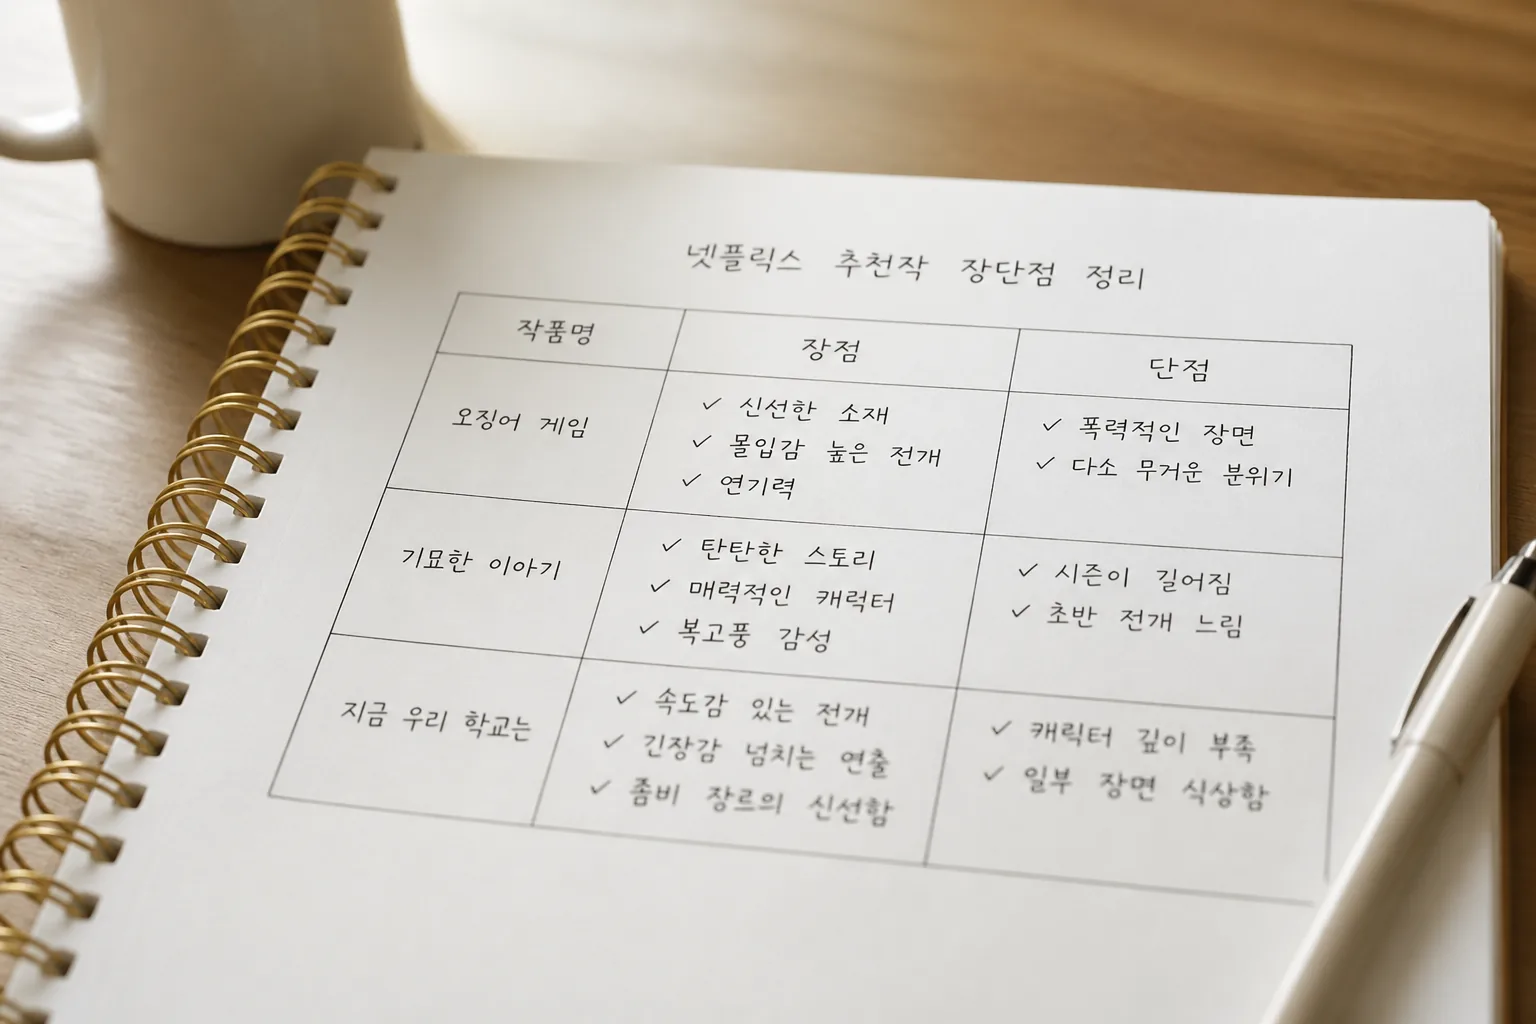 넷플릭스 추천작 장단점 정리
작품명 장점 단점
오징어 게임
✓ 신선한 소재
✓ 몰입감 높은 전개
✓ 연기력
✓ 폭력적인 장면
✓ 다소 무거운 분위기
기묘한 이야기
✓ 탄탄한 스토리
✓ 매력적인 캐릭터
✓ 복고풍 감성
✓ 시즌이 길어짐
✓ 초반 전개 느림
지금 우리 학교는
✓ 속도감 있는 전개
✓ 긴장감 넘치는 연출
✓ 좀비 장르의 신선함
✓ 캐릭터 깊이 부족
✓ 일부 장면 식상함